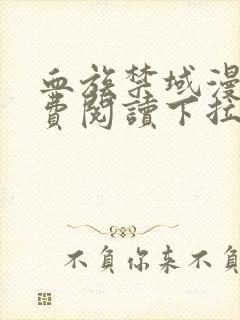 血族禁域漫
費閱讀下拉
不負你来不負